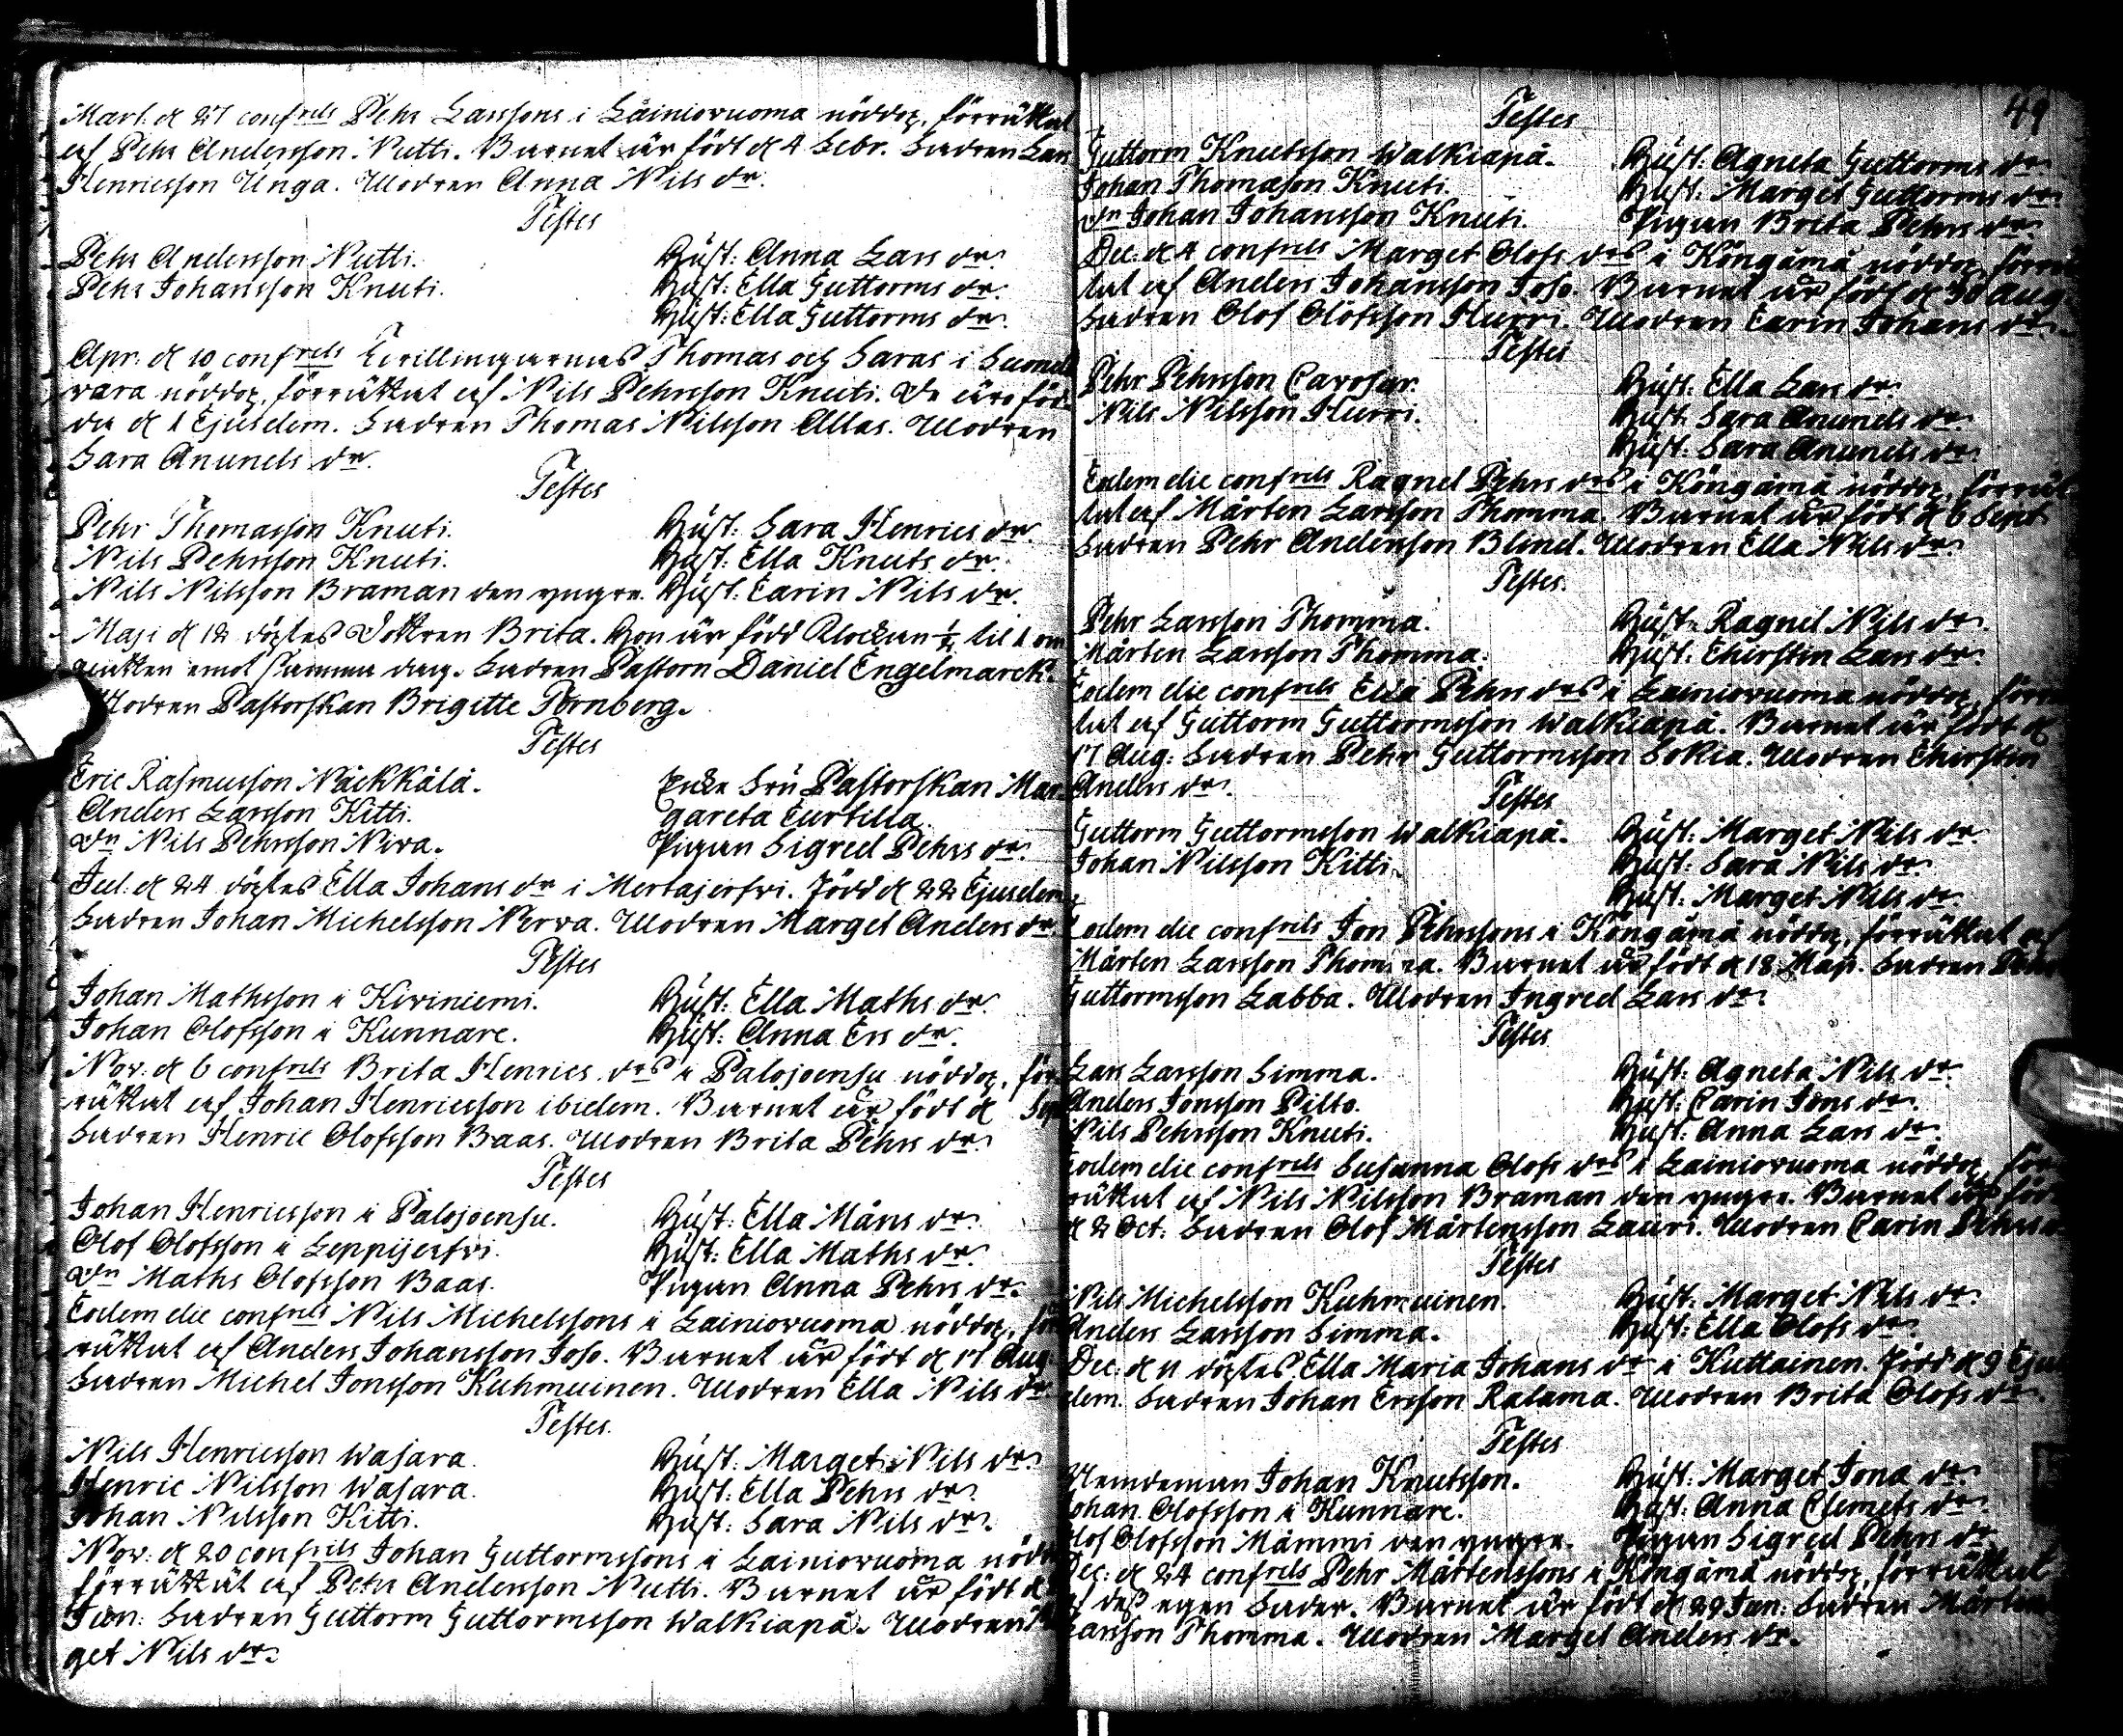 Mart. d 27 confrels Pehr Larssons i Lainiovuoma nöddop, förrättat
af Pehr Andersson Nutti. Barnet är födt d 4 Febr. Fadren Lars
Henricsson Unga. Modren Anna Nils dr.
Testes
Pehr Andersson Nutti. Hust: Anna Lars dr.
Pehr Johansson Knuti. Hust: Ella Guttorms dr.
Hust: Ella Guttorms dr.
Apr: d 10 confrels Tvillingarnas Thomas och Saras i Suond
vara nöddop, förrättat af Nils Pehrsson Knuti. De äro föd-
da d 1 Ejusdem. Fadren Thomas Nilsson Allas. Modren
Sara Anunds dr.
Testes
Pehr Thomasson Knuti. Hust: Sara Henrics dr
Nils Pehrsson Knuti. Hust: Ella Knuts dr.
Nils Nilsson Braman den yngre. Hust: Carin Nils dr.
Maji d 12 döptes Dottren Brita. Hon är född Klockan til 1 om
natten emot samma dag. Fadren Pastorn Daniel Engelmarck.
Modren Pastorskan Brigitte Tornberg.
Testes
Eric Rasmusson Näckkälä. Enke Fru Pastorskan Mar-
Anders Larsson Kitti. gareta Curtilia.
Dn Nils Pehrsson Niva. Pigan Sigred Pehrs dr.
Jul. d 24 döptes Ella Johans dr i Mertajerfvi. Född d 22 Ejusdem
Fadren Johan Michelsson Nerva. Modren Marget Anders dr.
Testes
Johan Mathsson i Kiviniemi. Hust: Ella Maths dr.
Johan Olofsson i Kunnare. Hust: Anna Ers dr.
Nov: d 6 confrels Brita Henrics drs i Palojoensu nöddop, för-
rättat af Johan Henricsson ibidem. Barnet är födt d Sep
Fadren Henric Olofsson Baas. Modren Brita Pehrs dr.
Testes
Johan Henricsson i Palojoensu. Hust: Ella Måns dr.
Olof Olofsson i Leppijerfvi. Hust: Ella Maths dr.
Dn Maths Olofsson Baas. Pigan Anna Pehrs dr.
Eodem die confrels Nils Michelssons i Lainiovuoma nöddop, för
rättat af Anders Johansson Joso. Barnet är födt d 17 Aug
Fadren Michel Jonsson Kuhmuinen. Modren Ella Nils dr.
Testes.
Nils Henricsson Wasara. Hust: Marget Nils dr.
Henric Nilsson Wasara. Hust: Ella Pehrs dr.
Johan Nilsson Kitti. Hust: Sara Nils dr.
Nov: d 20 confrels Johan Guttormssons i Lainiovuoma nödd
förrättat af Pehr Andersson Nutti. Barnet är födt d
Jun: Fadren Guttorm Guttormsson Walkiapä. Modren Mar
get Nils dr.
49
Testes
Guttorm Knutsson Walkiapä. Hust: Agneta Guttorms dr.
Johan Thomasson Knuti. Hust: Marget Guttorms dr.
Dn Johan Johansson Knuti. Pigan Brita Pehrs dr.
Dec: d 4 confrels Marget Olofs drs i Köngämä nöddop, förrät
tat af Anders Johansson Joso. Barnet är födt d 30 Aug.
Fadren Olof Olofsson Hurri. Modren Carin Johans dr.
Testes
Pehr Pehrsson Hust: Ella Lars dr.
Nils Nilsson Hurri. Hust: Sara Anunds dr.
Hust: Sara Anunds dr.
Eodem die confrels Ragnel Pehrs drs i Köngämä nöddop, förrät
tat af Mårten Larsson Thomma. Barnet är födt d 6 Sept
Fadren Pehr Andersson Blind. Modren Ella Nils dr.
Testes.
Pehr Larsson Thomma. Hust: Ragnel Nils dr.
Mårten Larsson Thomma. Hust: Chirstin Lars dr.
Eodem die confrels Ella Pehrs drs i Lainiovuoma nöddop, förrät
tat af Guttorm Guttormsson Walkiapä. Barnet är födt d
17 Aug: Fadren Pehr Guttormsson Sokia. Modren Chirstin
Anders dr.
Testes
Guttorm Guttormsson Walkiapä. Hust: Marget Nils dr.
Johan Nilsson Kitti. Hust: Sara Nils dr.
Hust: Marget Nils dr.
Eodem die confrels Jon Pehrssons i Köngämä nöddop, förrättat af
Mårten Larsson Thomma. Barnet är födt d 18 Maji. Fadren Pehr
Guttormsson Labba. Modren Ingred Lars dr.
Testes
Lars Larsson Simma. Hust: Agneta Nils dr.
Anders Jonsson Pilto. Hust: Carin Jons dr.
Nils Pehrsson Knuti. Hust: Anna Lars dr.
Eodem die confrels Susanna Olofs drs i Lainiovuoma nöddop, för
rättat af Nils Nilsson Braman den yngre. Barnet är född
d 2 Oct: Fadren Olof Mårtensson Lauri. Modren Carin Pehrs d
Testes
Nils Michelsson Kuhmuinen. Hust: Marget Nils dr.
Anders Larsson Simma. Hust: Ella Olofs dr.
Dec: d 11 döptes Ella Maria Johans dr i Kuttainen. Född d 9 Ejus
dem. Fadren Johan Ersson Ratama. Modren Brita Olofs dr.
Testes
Nemdeman Johan Knutsson. Hust: Marget Jona dr
Johan Olofsson i Kunnare. Hust: Anna Clemets dr
Olof Olofsson Mämmi den yngre. Pigan Sigred Pehrs dr.
Dec: d 24 confrels Pehr Mårtenssons i Köngämä nöddop, förrättat
af dess egen Fader. Barnet är födt d 29 Jan: Fadren Mårten
Larsson Thomma. Modren Marget Anders dr.